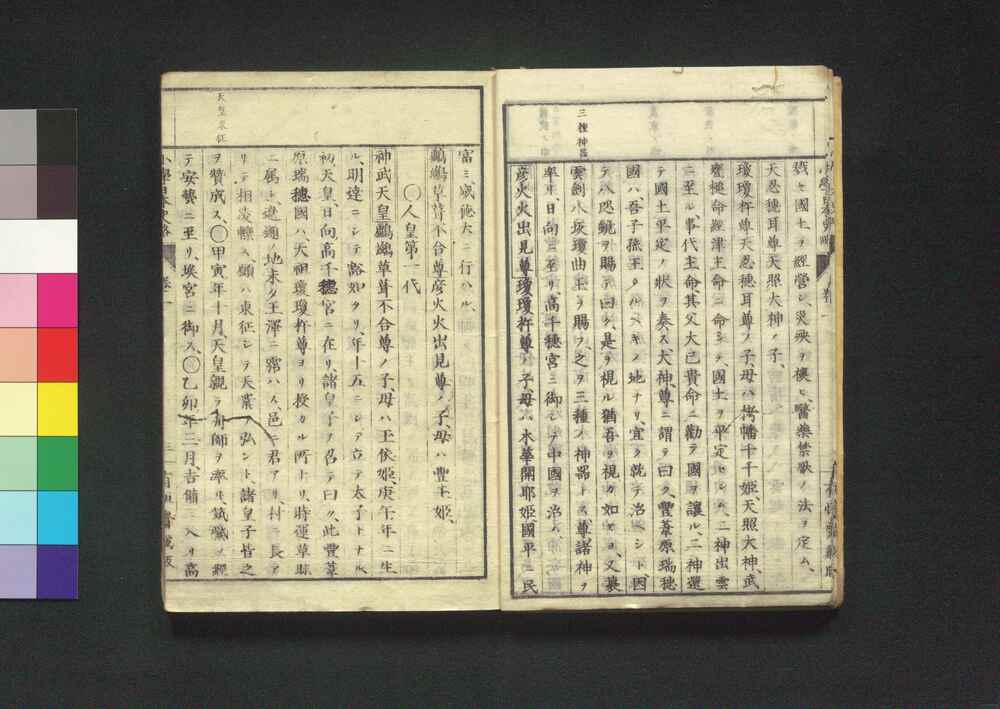 戡セ國土ヲ經營シ、災殃ヲ攘ヒ、醫藥禁厭ノ法ヲ定ム、
天忍穗耳尊天照大神ノ子、
瓊瓊杵尊天忍穗耳尊ノ子母ハ栲幡千千姬、天照大神、武
甕槌命經津主命ニ命シテ國土ヲ平定セシム、二神出雲
ニ至ル、事代主命其父大己貴命ニ勸テ國ヲ讓ル、二神還
テ國土平定ノ狀ヲ奏ス大神、尊ニ謂テ曰ク、豐葦原瑞穗
國ハ、吾子孫王タルヘキノ地ナリ、宜ク就テ治ヘシト、因
テ八咫鏡ヲ賜テ曰ク、是ヲ視ル猶吾ヲ視カ如セヨ、又叢
雲劍八坂瓊曲玉ヲ賜フ、之ヲ三種ノ神器トス尊諸神ヲ
率テ、日向ニ至リ、高千穗宮ニ御シテ中國ヲ治ム、
彥火火出見尊瓊瓊杵尊ノ子、母ハ木華開耶姬、國平ニ民
三種神器
富ミ威德大ニ行ハル、
鸕鷀草葺不合尊彥火火出見尊ノ子、母ハ豐玉姬、
〇人皇第一代
神武天皇鸕鷀草葺不合尊ノ子、母ハ玉依姬、庚午年ニ生
ル、明達ニシテ豁如タリ、年十五ニシテ立テ太子トナル
初天皇、日向高千穗宮ニ在リ、諸皇子ヲ召テ曰ク、此豐葦
原瑞穗國ハ、天祖瓊瓊杵尊ヨリ授カル所ナリ、時運草昧
ニ屬シ遼邈ノ地未タ王澤ニ霑ハス邑ニ君アリ、村ニ長ア
リテ相凌轢ス、願ハ東征シテ天業ヲ弘ント、諸皇子皆之
ヲ贊成ス、〇甲寅年十月、天皇親ラ舟師ヲ率テ、筑紫ヲ經
テ安藝ニ至リ、埃宮ニ御ス、〇乙卯年三月、吉備ニ入リ高
天皇東征